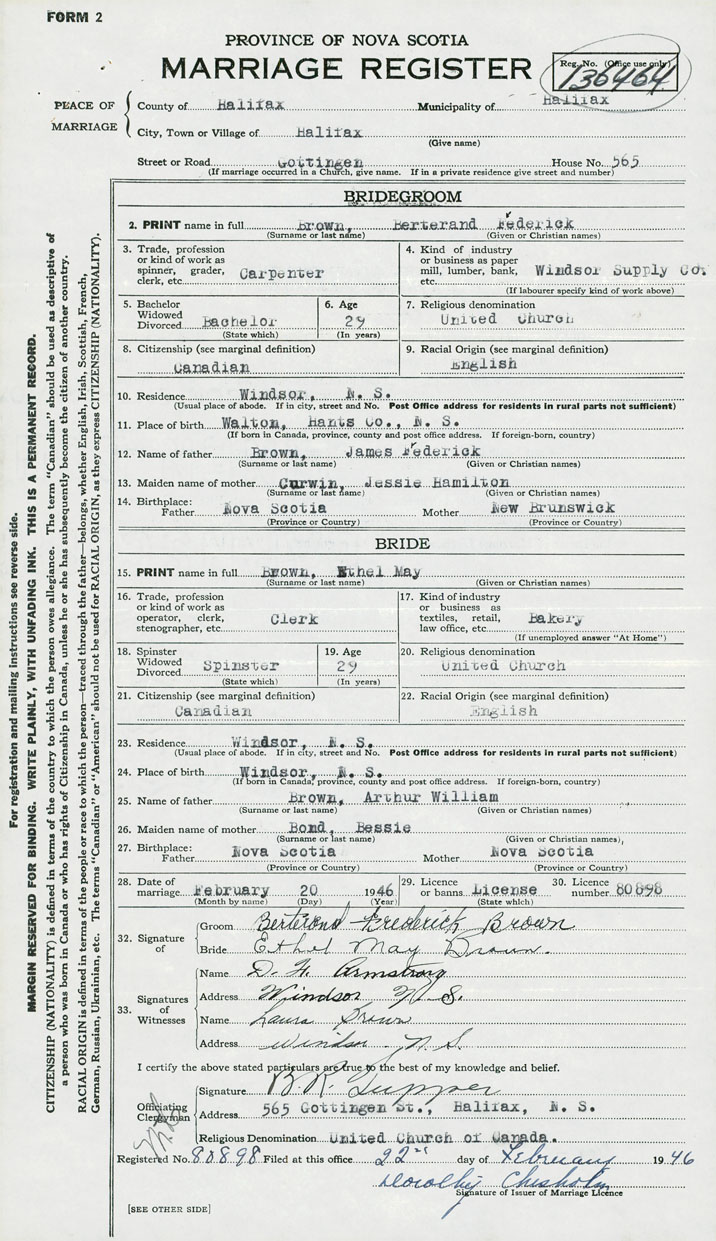 FORM 2
PROVINCE OF NOVA SCOTIA
MARRIAGE REGISTER
Reg. No. (Office use only)
136464
PLACE OF MARRIAGE
County of Halifax Municipality of Halifax
City, Town or Village of Halifax
(Give name)
Street or Road Gottingen House No. 565
(If marriage occurred in a Church, give name. If in a private residence give street and number)
BRIDEGROOM
2. PRINT name in full Brown, Berterand Federick
(Surname or last name) (Given or Christian names)
3. Trade, profession or kind of work as spinner, grader, clerk, etc. Carpenter
4. Kind of industry or business as paper mill, lumber, bank, etc. Windsor Supply Co.
(If labourer specify kind of work above)
5. Bachelor Widowed Divorced Bachelor
(State which)
6. Age 29
(In years)
7. Religious denomination United Church
8. Citizenship (see marginal definition) Canadian
9. Racial Origin (see marginal definition) English
10. Residence Windsor, N. S.
(Usual place of abode. If in city, street and No. Post Office address for residents in rural parts not sufficient)
11. Place of birth Walton, Hants Co., N. S.
(If born in Canada, province, county and post office address. If foreign-born, country)
12. Name of father Brown, James Federick
(Surname or last name) (Given or Christian names)
13. Maiden name of mother Curwin, Jessie Hamilton
(Surname or last name) (Given or Christian names)
14. Birthplace: Father Nova Scotia Mother New Brunswick
(Province or Country) (Province or Country)
BRIDE
15. PRINT name in full Brown, Ethel May
(Surname or last name) (Given or Christian names)
16. Trade, profession or kind of work as operator, clerk, stenographer, etc. Clerk
17. Kind of industry or business as textiles, retail, law office, etc. Bakery
(If unemployed answer "At Home")
18. Spinster Widowed Divorced Spinster
(State which)
19. Age 29
(In years)
20. Religious denomination United Church
21. Citizenship (see marginal definition) Canadian
22. Racial Origin (see marginal definition) English
23. Residence Windsor, N. S.
(Usual place of abode. If in city, street and No. Post Office address for residents in rural parts not sufficient)
24. Place of birth Windsor, N. S.
(If born in Canada, province, county and post office address. If foreign-born, country)
25. Name of father Brown, Arthur William
(Surname or last name) (Given or Christian names)
26. Maiden name of mother Bond, Bessie
(Surname or last name) (Given or Christian names)
27. Birthplace: Father Nova Scotia Mother Nova Scotia
(Province or Country) (Province or Country)
28. Date of marriage February 20 1946
(Month by name) (Day) (Year)
29. Licence or banns License
(State which)
30. Licence number 80898
32. Signature of
Groom Bertrond Frederick Brown
Bride Ethel May Brown.
33. Signatures of Witnesses
Name D. H. Armstrong
Address Windsor N. S.
Name Laura Brown
Address Windsor N. S.
I certify the above stated particulars are true to the best of my knowledge and belief.
Officiating Clergyman
Signature B. R. Tupper
Address 565 Gottingen St., Halifax, N. S.
Religious Denomination United Church of Canada.
Registered No. 80898 Filed at this office 22nd day of February 1946
Dorothy Chisholm
Signature of Issuer of Marriage Licence
[SEE OTHER SIDE]
For registration and mailing instructions see reverse side.
MARGIN RESERVED FOR BINDING. WRITE PLAINLY, WITH UNFADING INK. THIS IS A PERMANENT RECORD.
CITIZENSHIP (NATIONALITY) is defined in terms of the country to which the person owes allegiance. The term "Canadian" should be used as descriptive of
a person who was born in Canada or who has rights of Citizenship in Canada, unless he or she has subsequently become the citizen of another country.
RACIAL ORIGIN is defined in terms of the people or race to which the person—traced through the father—belongs, whether English, Irish, Scottish, French,
German, Russian, Ukrainian, etc. The terms "Canadian" or "American" should not be used for RACIAL ORIGIN, as they express CITIZENSHIP (NATIONALITY).